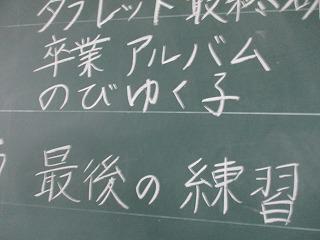 タブレット最終
卒業アルバム
のびゆく子
最後の練習